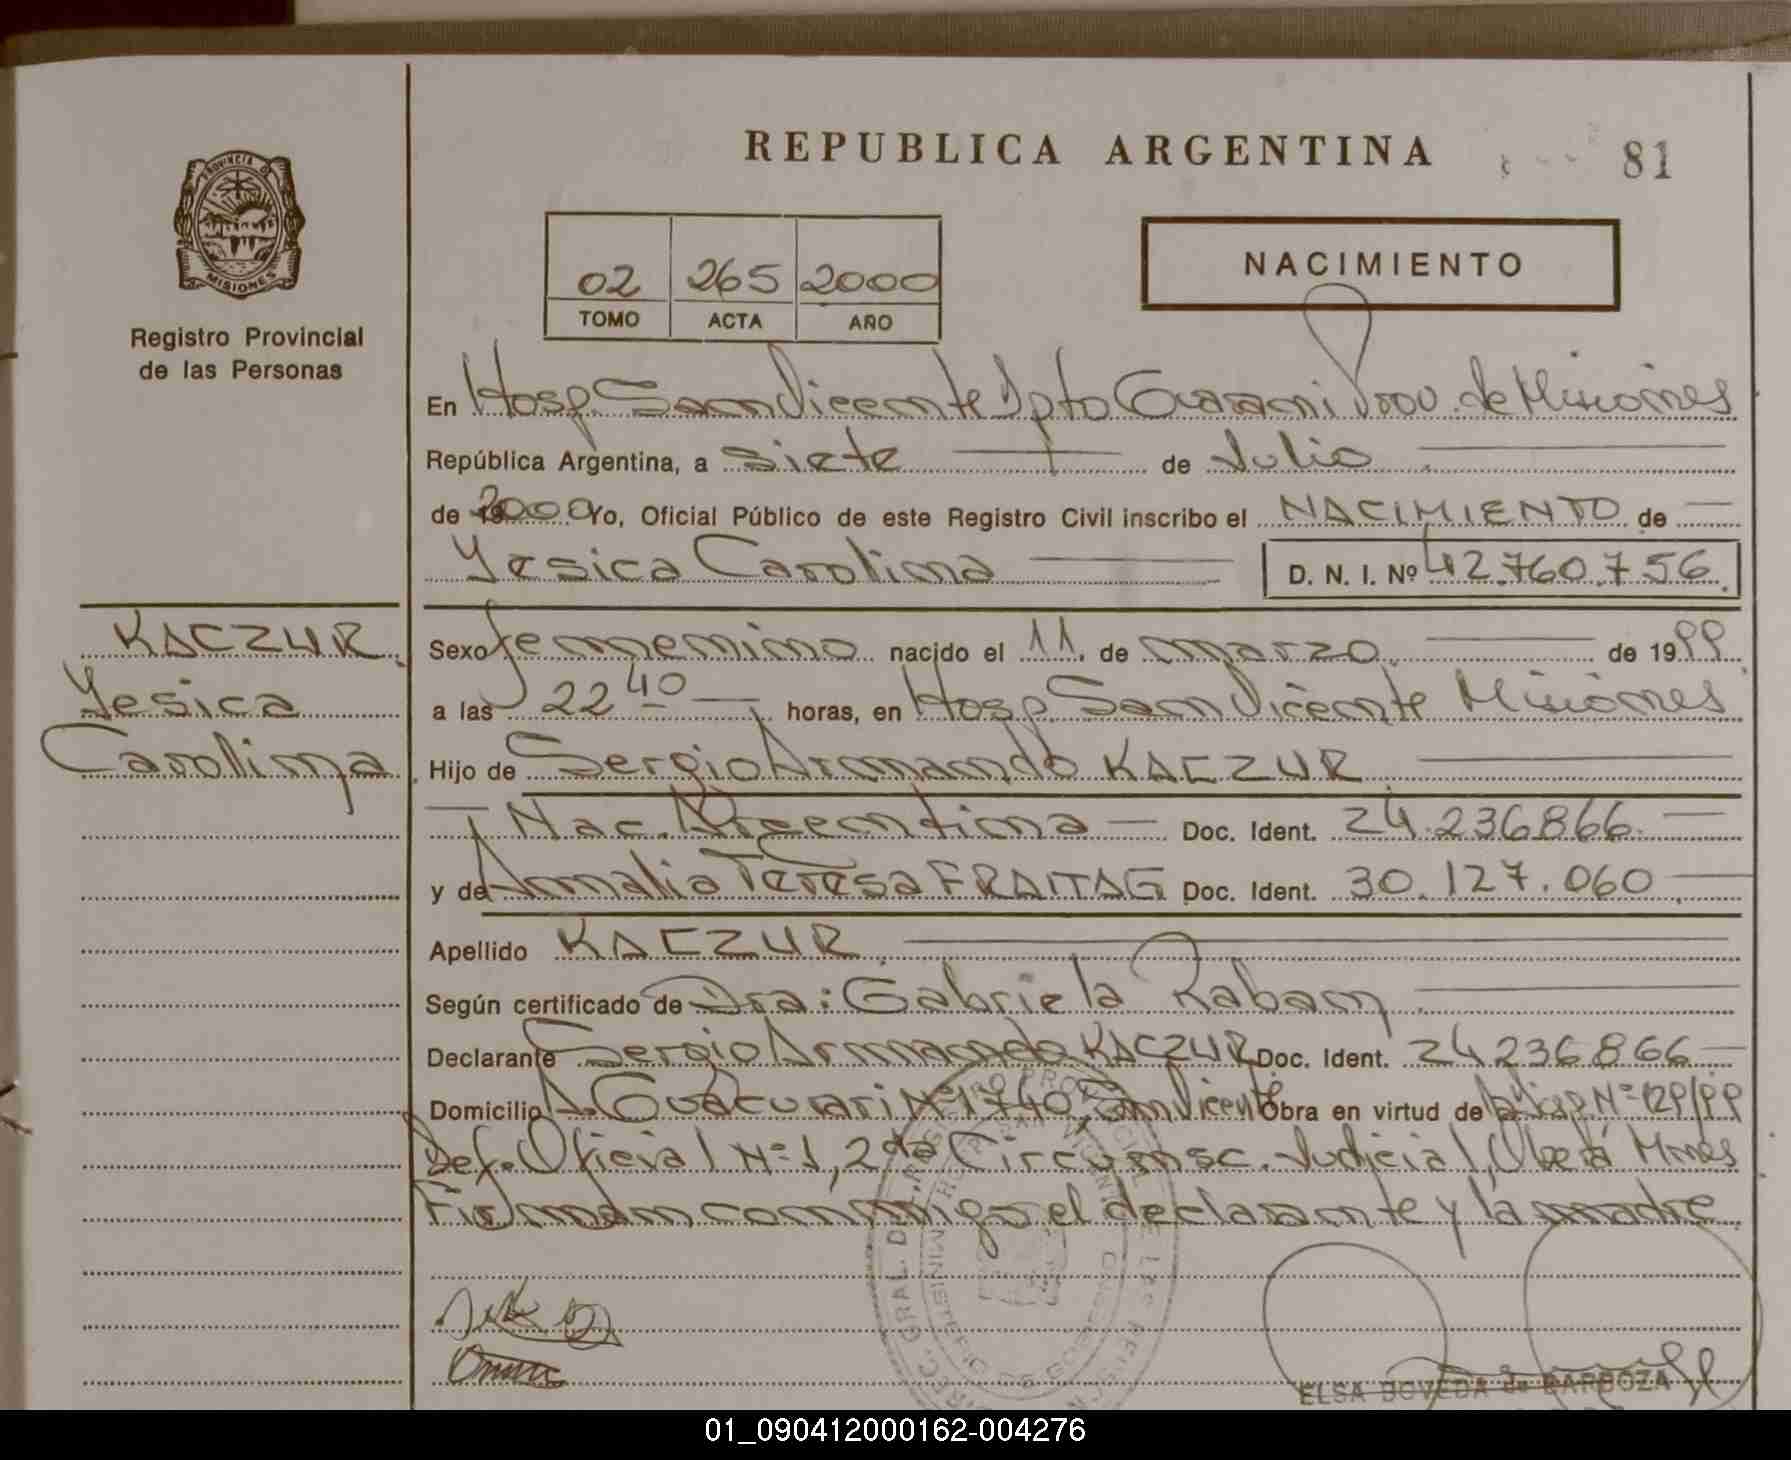 REPUBLICA ARGENTINA
81
PROVINCIA D
MISIONES
Registro Provincial
de las Personas
02 265 2000
TOMO ACTA AÑO
NACIMIENTO
En Hosp. San Vicente Dpto Guarani Prov. de Misiones
República Argentina, a siete de Julio
de 2000 Yo, Oficial Público de este Registro Civil inscribo el NACIMIENTO de
Yesica Carolina D. N. I. Nº 42.760.756
KACZUR
Yesica
Carolina
Sexo femenino nacido el 11 de marzo de 1999
a las 22 40 horas, en Hosp. San Vicente Misiones
Hijo de Sergio Armando KACZUR
Nac. Argentina Doc. Ident. 24.236866
y de Amalia Teresa FRAITAG Doc. Ident. 30.127.060
Apellido KACZUR
Según certificado de Dra: Gabriela Raban
Declarante Sergio Armando KACZUR Doc. Ident. 24236866
Domicilio A. Guacurari Nº 1740, San Vicente Obra en virtud de Nº 129/99
Def. Oficial Nº 1, 2da Circunsc. Judicial, Oberá Mnes
Firman conmigo el declarante y la madre
ELSA BOVEDA de BARBOZA
01_090412000162-004276